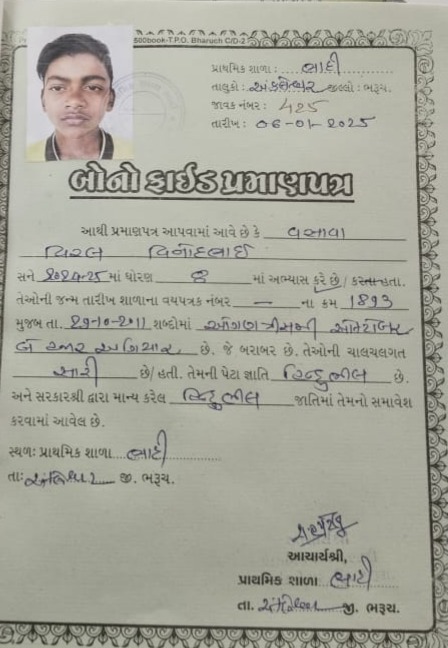 500book-T.P.O. Bharuch C/D-2
પ્રાથમિક શાળા : ભાદી
તાલુકો : અંકલેશ્વર જીલ્લો : ભરૂચ.
જાવક નંબર : 425
તારીખ : 06-01-2025
બોનો ફાઈડ પ્રમાણપત્ર
આથી પ્રમાણપત્ર આપવામાં આવે છે કે વસાવા
વિરલ વિનોદભાઈ
સને ૨૦૨૪-૨૫ માં ધોરણ ૮ માં અભ્યાસ કરે છે / કરતા હતા.
તેઓની જન્મ તારીખ શાળાના વયપત્રક નંબર — ના ક્રમ 1893
મુજબ તા. ૨૭-૧૦-૨૦૧૧ શબ્દોમાં ઓક્ટોબર
બે હજાર અગિયાર છે. જે બરાબર છે. તેઓની ચાલચલગત
સારી છે/ હતી. તેમની પેટા જ્ઞાતિ હિન્દુ ભીલ છે.
અને સરકારશ્રી દ્વારા માન્ય કરેલ હિન્દુ ભીલ જાતિમાં તેમનો સમાવેશ
કરવામાં આવેલ છે.
સ્થળઃ પ્રાથમિક શાળા ભાદી
તાઃ અંકલેશ્વર જી. ભરૂચ.
આચાર્યશ્રી,
પ્રાથમિક શાળા ભાદી
તા. અંકલેશ્વર જી. ભરૂચ.